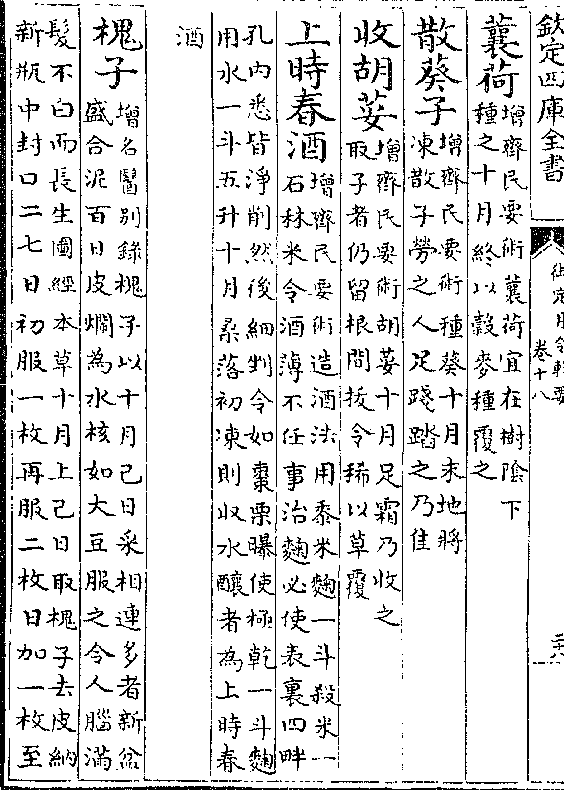 欽定四庫全書
御定月令輯要
卷十八
蘘荷增齊民要術蘘荷宜在樹陰下
種之十月終以穀麥種覆之
散葵子增齊民要術種葵十月末地將
凍散子勞之人足踐踏之乃佳
收胡荽增齊民要術胡荽十月足霜乃收之
取子者仍留根間拔令稀以草覆
上時春酒增齊民要術造酒法用黍米麴一斗殺米一
石秫米令酒薄不任事治麴必使表裏四畔
孔內悉皆淨削然後細剉令如棗栗曝使極乾一斗麴
用水一斗五升十月桑落初凍則收水釀者為上時春
酒
槐子增名醫別錄槐子以十月己日采相連多者新盆
盛合泥百日皮爛為水核如大豆服之令人腦滿
髮不白而長生圖經本草十月上己日取槐子去皮納
新瓶中封口二七日初服一枚再服二枚日加一枚至